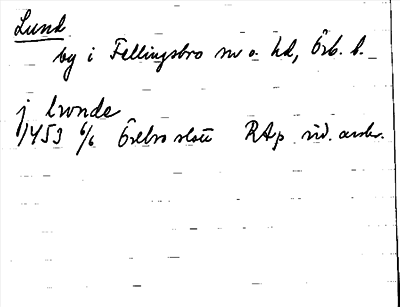 Lund
by i Fellingsbro sn o. hd, Örb. l.
j lwnde
1453 6/6 Örebro slott RAp vid. avskr.